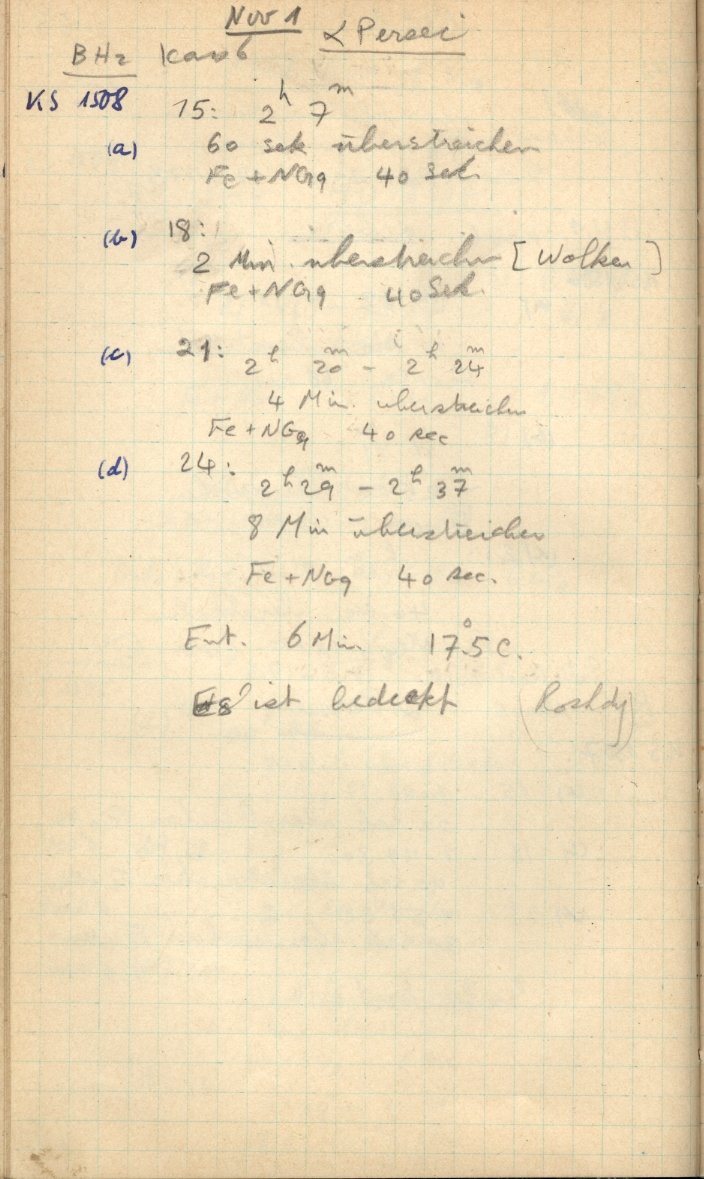 Nov 1 α Persei
BH2 Kas 6
KS 1508 15: 2h 7m
(a) 60 sek überstreichen
Fe + NG9 40 Sek
(b) 18:
2 Min. überstreichen [Wolken]
Fe + NG9 40 Sek
(c) 21: 2h 20m - 2h 24m
4 Min. überstreichen
Fe + NG9 40 sec
(d) 24: 2h 29m - 2h 37m
8 Min überstreichen
Fe + NG9 40 sec.
Ent. 6 Min 17.°5 C.
Es ist bedeckt (Roshdy)